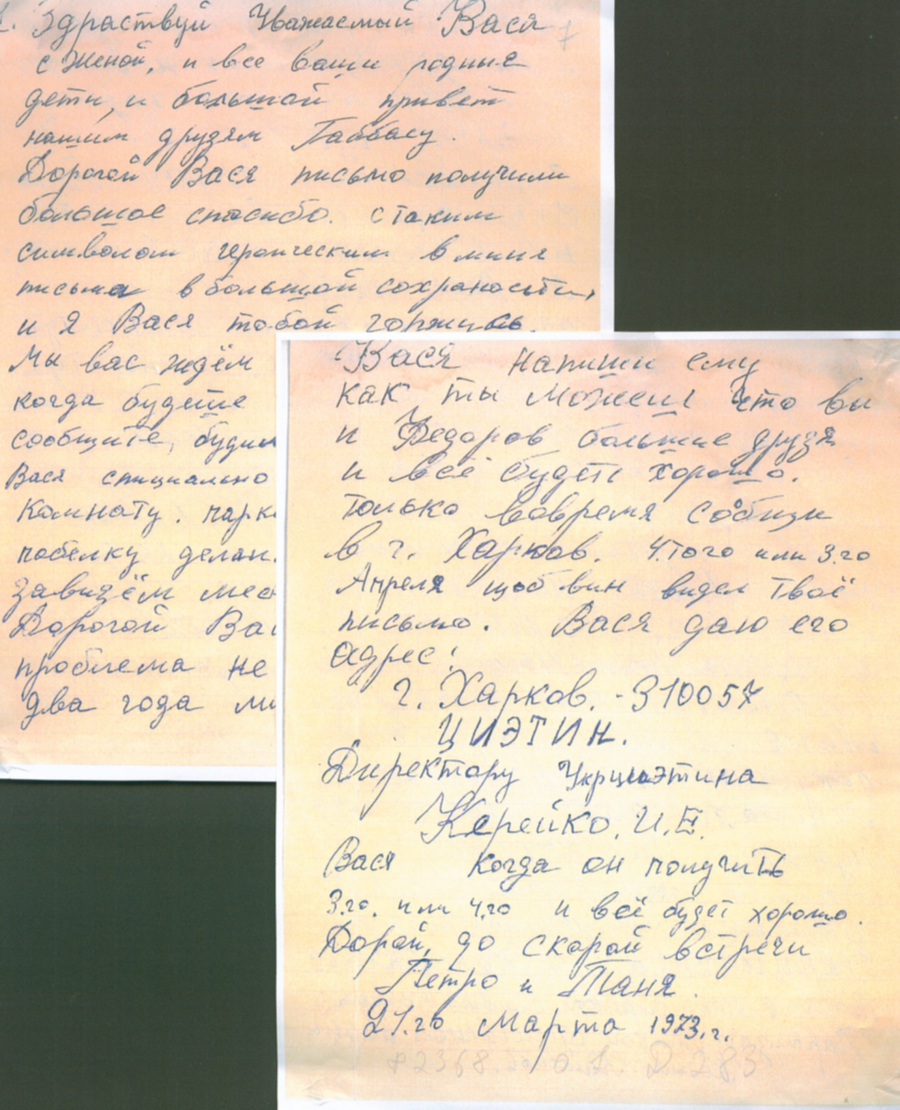 Здраствуй Уважаемый Вася
с женой, и все ваши родные
дети, и большой привет
нашим друзям Габбасу.
Дорогой Вася письмо получили
большое спасибо. с таким
символом героическим в миня
письма в большой сохраности,
и я Вася тобой горжусь.
Мы вас ждём
когда будете
сообщите, будим
Вася спициально
комнату. парк
побелку делал.
завидём мес
Дорогой Вас
проблема не
два года ми
Вася напиши ему
как ты можеш что вы
и Федоров большие друзя
и всё будеть хорошо.
только вовремя собщи
в г. Харков. 4.того или 3.го
Апреля щоб вин видел твоё
письмо. Вася даю его
адрес:
г. Харков. - 310057
ЦИЭТИН.
Директору Укрциэтина
Керейко. И.Е.
Вася когда он получить
3.го. или 4.го и всё будет хорошо.
Дорой, до скорой встречи
Петро и Таня.
21.го марта 1973.г.